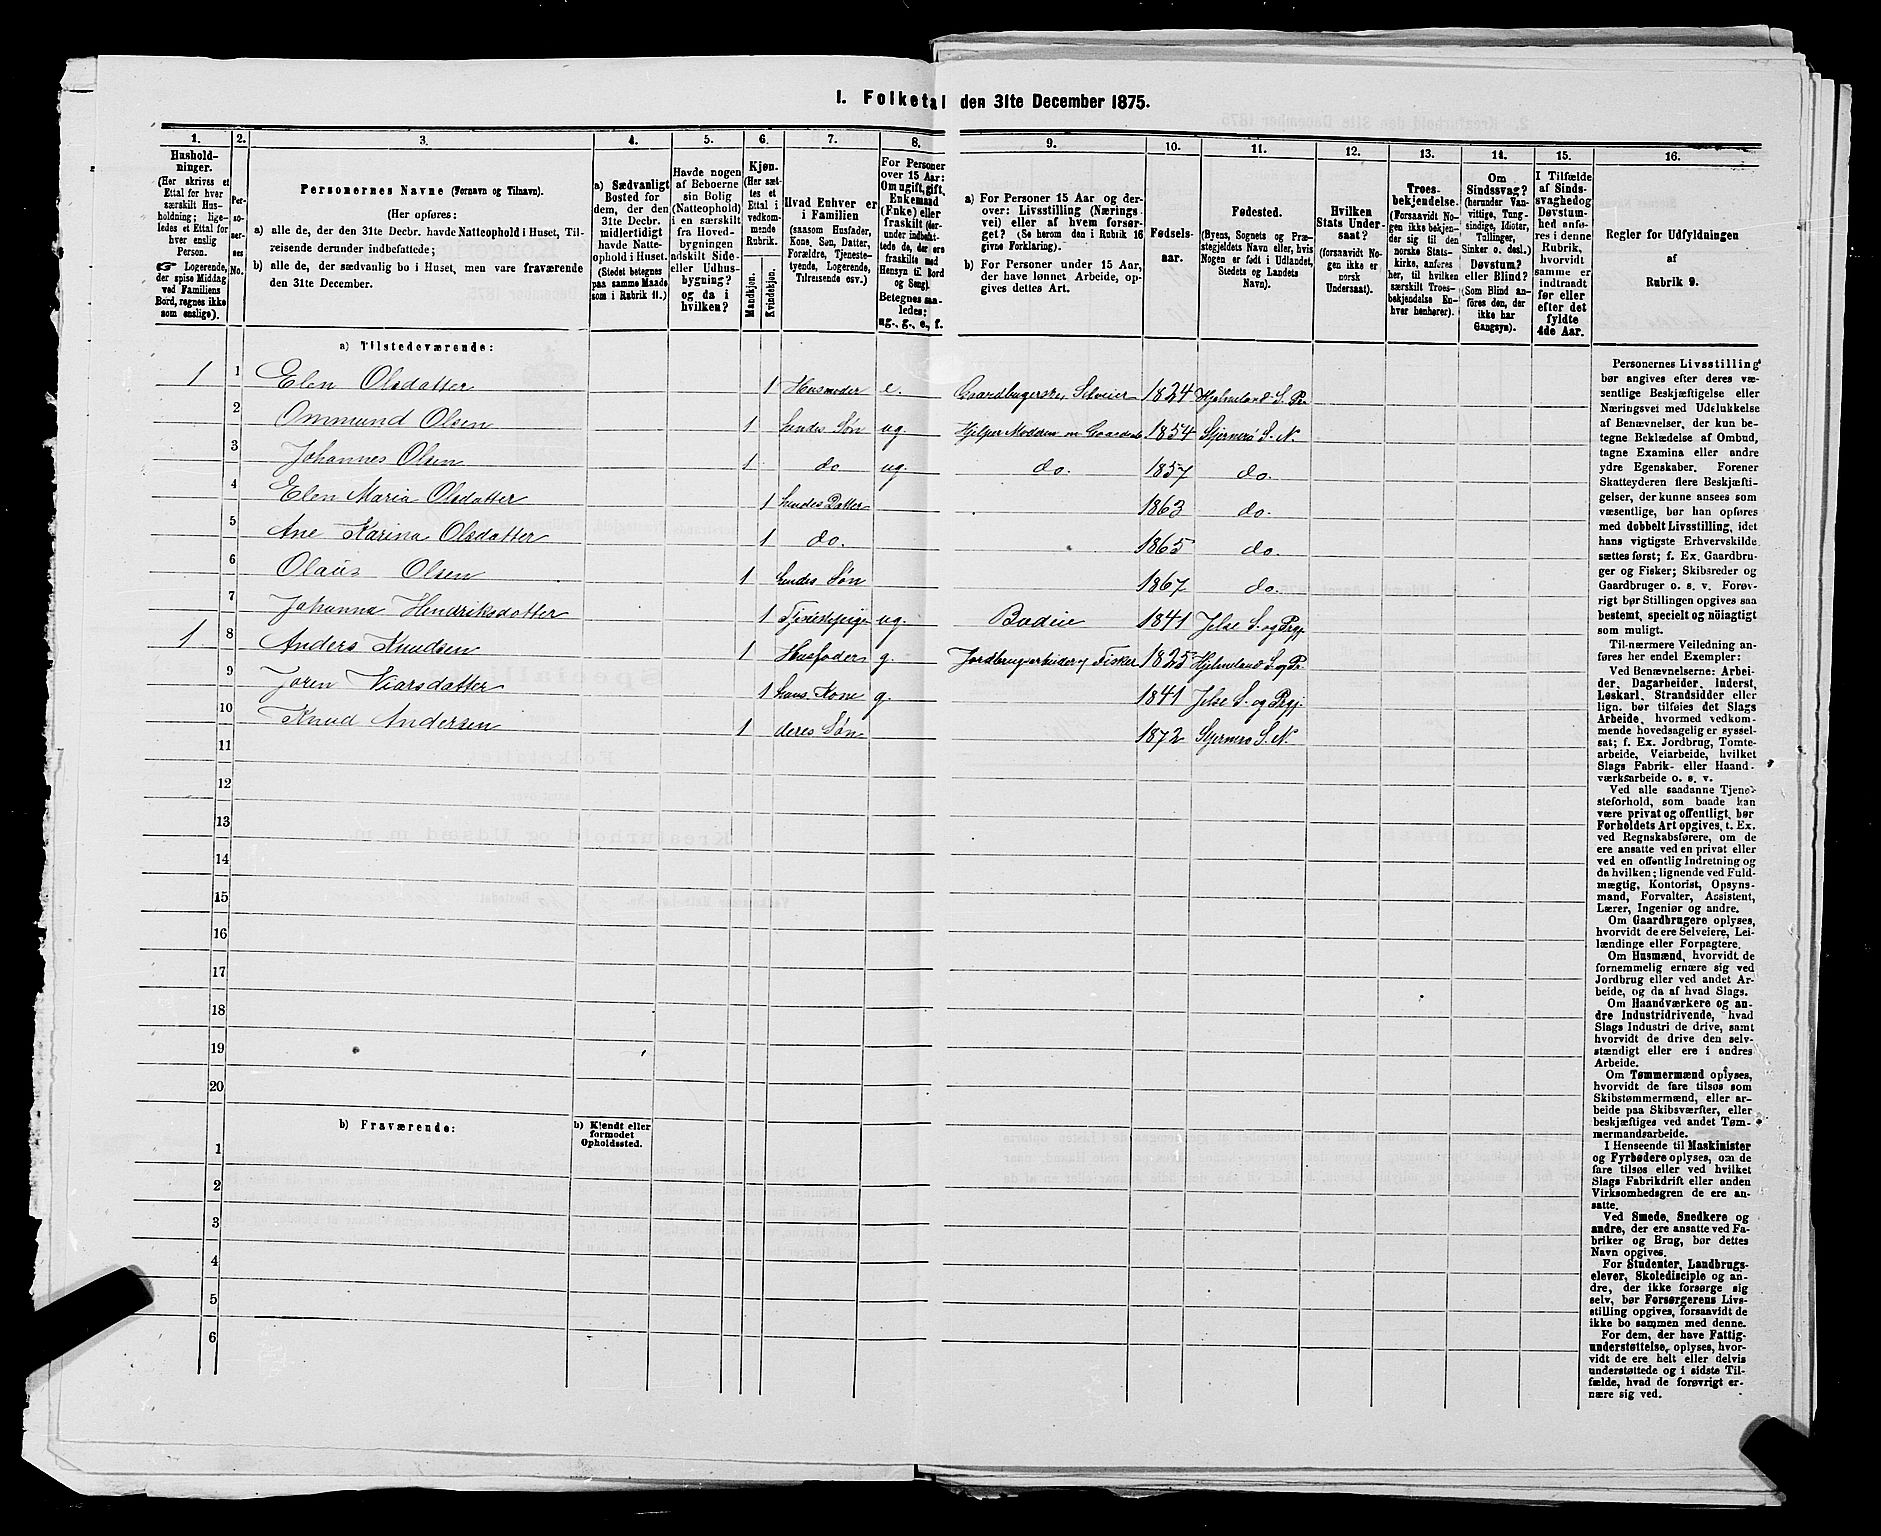 I. Folketal den 31te December 1875.
1. 2. 3. 4. 5. 6. 7. 8. 9. 10. 11. 12. 13. 14. 15. 16.
Hushold-
ninger.
(Her skrives et
Ettal for hver
særskilt Hus-
holdning; lige-
ledes et Ettal for
hver enslig
Person.
☞ Logerende,
der spise Middag
ved Familiens
Bord, regnes ikke
som enslige).
Per-
so-
ner-
nes
No.
Personernes Navne (Fornavn og Tilnavn).
(Her opføres:
a) alle de, der den 31te Decbr. havde Natteophold i Huset, Til-
reisende derunder indbefattede;
b) alle de, der sædvanlig bo i Huset, men vare fraværende
den 31te December.
a) Sædvanligt
Bosted for
dem, der den
31te Decbr.
midlertidigt
havde Natte-
ophold i Huset.
(Stedet betegnes
paa samme Maade
som i Rubrik 11.)
Havde nogen
af Beboerne
sin Bolig
(Natteophold)
i en særskilt
fra Hoved-
bygningen
adskilt Side-
eller Udhus-
bygning?
og da i
hvilken?
Kjøn.
(Her sæt-
tes et
Ettal i
vedkom-
mende
Rubrik.
Mandkjøn.
Kvindekjøn.
Hvad Enhver er
i Familien
(saasom Husfader,
Kone, Søn, Datter,
Forældre, Tjeneste-
tyende, Logerende,
Tilreisende osv.)
For Personer
over 15 Aar:
Om ugift, gift,
Enkemand
(Enke) eller
fraskilt (her-
under indbefat-
tede de, der ere
fraskilte med
Hensyn til Bord
og Seng).
Betegnes saa-
ledes:
ug., g., e., f.
a) For Personer 15 Aar og der-
over: Livsstilling (Nærings-
vei) eller af hvem forsør-
get? (Se herom den i Rubrik 16
givne Forklaring).
b) For Personer under 15 Aar,
der have lønnet Arbeide, op-
gives dettes Art.
Fødsels-
aar.
Fødested.
(Byens, Sognets og Præ-
stegjeldets Navn eller, hvis
Nogen er født i Udlandet,
Stedets og Landets
Navn).
Hvilken
Stats Under-
saat?
(forsaavidt No-
gen ikke er
norsk
Undersaat).
Troes-
bekjendelse.
(Forsaavidt No-
gen ikke bekjen-
der sig til den
norske Stats-
kirke, anføres
her, til hvilket
særskilt Troes-
bekjendelse En-
hver henhører).
Om
Sindssvag?
(herunder Van-
vittige, Tung-
sindige, Idioter,
Tullinger,
Sinker o. desl.)
Døvstum?
eller Blind?
(Som Blind an-
føres den, der
ikke har
Gangsyn).
I Tilfælde
af Sinds-
svaghed og
Døvstum-
hed anfø-
res i denne
Rubrik,
hvorvidt
samme er
indtraadt
før eller
efter det
fyldte
4de Aar.
Regler for Udfyldningen
af
Rubrik 9.
a) Tilstedeværende:
1 1 Elen Olsdatter 1 Husmoder e. Gaardbrugerske, Selveier 1824 Hjelmeland S. Pr.
2 Ommund Olsen 1 hendes Søn ug. Hjelper Moderen m Gaardsb 1854 Sjernerø S. N.
3 Johannes Olsen 1 do ug. do. 1857 do.
4 Elen Maria Olsdatter 1 hendes Datter 1863 do.
5 Ane Karina Olsdatter 1 do. 1865 do.
6 Olaus Olsen 1 hendes Søn 1867 do.
7 Johanna Hendriksdatter 1 Tjenestepige ug. Budeie 1841 Jelse S. og Prgj.
1 8 Anders Knudsen 1 Husfader g. Jordbrugarbeider, Fisker 1825 Hjelmeland S. og Pr.
9 Joren Viarsdatter 1 hans Kone g. 1841 Jelse S. og Prgj.
10 Knud Andersen 1 deres Søn 1872 Sjernerø S. N.
11
12
13
14
15
16
17
18
19
20
b) Fraværende:
b) Kjendt eller
formodet
Opholdssted.
1
2
3
4
5
6
Personernes Livsstilling
bør angives efter deres væ-
sentlige Beskjæftigelse eller
Næringsvei med Udelukkelse
af Benævnelser, der kun be-
tegne Beklædelse af Ombud,
tagne Examina eller andre
ydre Egenskaber. Forener
Skatteyderen flere Beskjæfti-
gelser, der kunne ansees som
væsentlige, bør han opføres
med dobbelt Livsstilling, idet
hans vigtigste Erhvervskilde
sættes først; f. Ex. Gaardbru-
ger og Fisker; Skibsreder og
Gaardbruger o. s. v. Forøv-
rigt bør Stillingen opgives saa
bestemt, specielt og nöiagtigt
som muligt.
Til nærmere Veiledning an-
føres her endel Exempler:
Ved Benævnelserne: Arbei-
der, Dagarbeider, Inderst,
Løskarl, Strandsidder eller
lign. bør tilføies det Slags
Arbeide, hvormed vedkom-
mende hovedsagelig er syssel-
sat; f. Ex. Jordbrug, Tomte-
arbeide, Veiarbeide, hvilket
Slags Fabrik- eller Haand-
værksarbeide o. s. v.
Ved alle saadanne Tjene-
steforhold, som baade kan
være privat og offentligt, bør
Forholdets Art opgives, t. Ex.
ved Regnskabsførere, om de
ere ansatte ved en privat eller
ved en offentlig Indretning og
da hvilken; lignende ved Fuld-
mægtig, Kontorist, Opsyns-
mand, Forvalter, Assistent,
Lærer, Ingeniør og andre.
Om Gaardbrugere oplyses,
hvorvidt de ere Selveiere, Lei-
lændinge eller Forpagtere.
Om Husmænd, hvorvidt de
fornemmelig ernære sig ved
Jordbrug eller ved andet Ar-
beide, og da af hvad Slags.
Om Haandværkere og an-
dre Industridrivende, hvad
Slags Industri de drive, samt
hvorvidt de drive den selv-
stændigt eller ere i andres
Arbeide.
Om Tømmermænd oplyses,
hvorvidt de fare tilsøs som
Skibstømmermænd, eller ar-
beide paa Skibsværfter, eller
beskjæftiges ved andet Tøm-
mermandsarbeide.
I Henseende til Maskinister
og Fyrbødere oplyses, om de
fare tilsøs eller ved hvilket
Slags Fabrikdrift eller anden
Virksomhedsgren de ere an-
satte.
Ved Smede, Snedkere og
andre, der ere ansatte ved Fa-
briker og Brug, bør dettes
Navn opgives.
For Studenter, Landbrugs-
elever, Skoledisciple og an-
dre, der ikke forsørge sig
selv, bør Forsørgerens Livs-
stilling opgives, forsaavidt de
ikke bo sammen med denne.
For dem, der have Fattig-
understøttelse, oplyses, hvor-
vidt de ere helt eller delvis
understøttede og i sidste Til-
fælde, hvad de forøvrigt er-
nære sig ved.